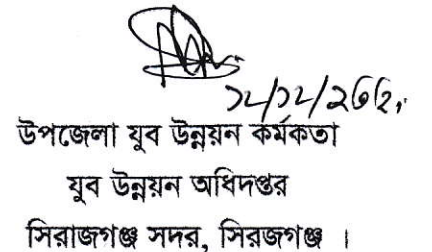 উপজেলা যুব উন্নয়ন কর্মকতা
যুব উন্নয়ন অধিদপ্তর
সিরাজগঞ্জ সদর, সিরজগঞ্জ ।